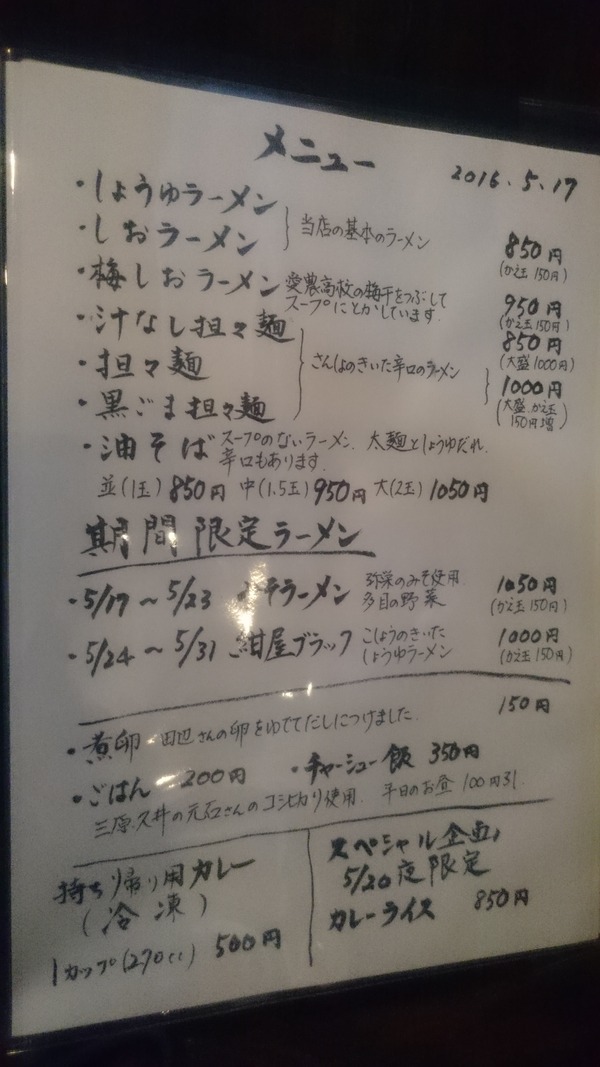 メニュー 2016.5.17
・しょうゆラーメン
・しおラーメン 当店の基本のラーメン 850円
(かえ玉150円)
・梅しおラーメン 愛農高校の梅干をつぶして
スープにとかしています. 950円
(かえ玉150円)
・汁なし担々麺 850円
(大盛1000円)
・担々麺 さんしょのきいた辛口のラーメン
・黒ごま担々麺 1000円
(大盛.かえ玉
150円増)
・油そば スープのないラーメン. 太麺としょうゆだれ.
辛口もあります.
並(1玉)850円 中(1.5玉)950円 大(2玉)1050円
期間限定ラーメン
・5/17〜5/23 ラーメン 弥栄のみそ使用
多目の野菜 1050円
(かえ玉150円)
・5/24〜5/31 紺屋ブラック こしょうのきいた
しょうゆラーメン 1000円
(かえ玉150円)
・煮卵 田辺さんの卵をゆでてだしにつけました. 150円
・ごはん 200円 ・チャーシュー飯 350円
三原久井の元石さんのコシヒカリ使用. 平日のお昼100円引.
持ち帰り用カレー
(冷凍)
1カップ(270cc) 500円
スペシャル企画
5/20夜限定
カレーライス 850円